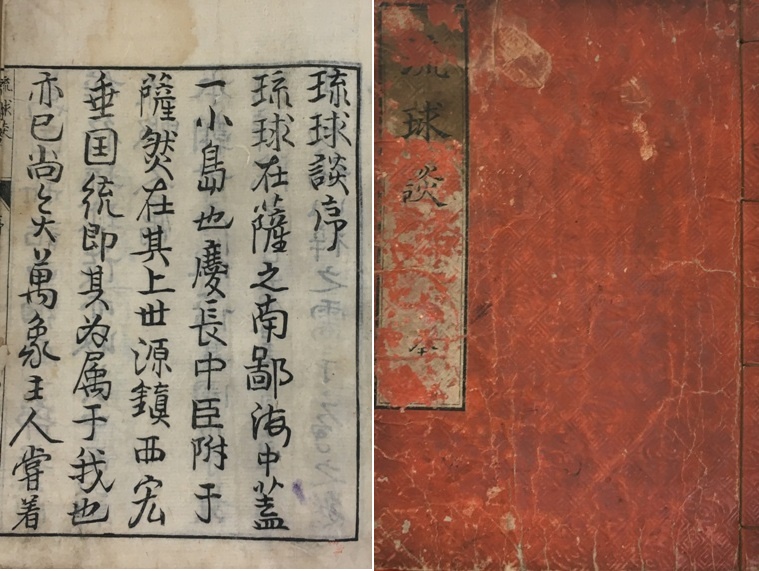 琉球談序
琉球在薩之南鄙海中蓋
一小島也慶長中臣附于
薩然在其上世源鎮西宏
垂国統即其為属于我也
亦已尚矣萬象主人嘗着
琉球談
琉球談